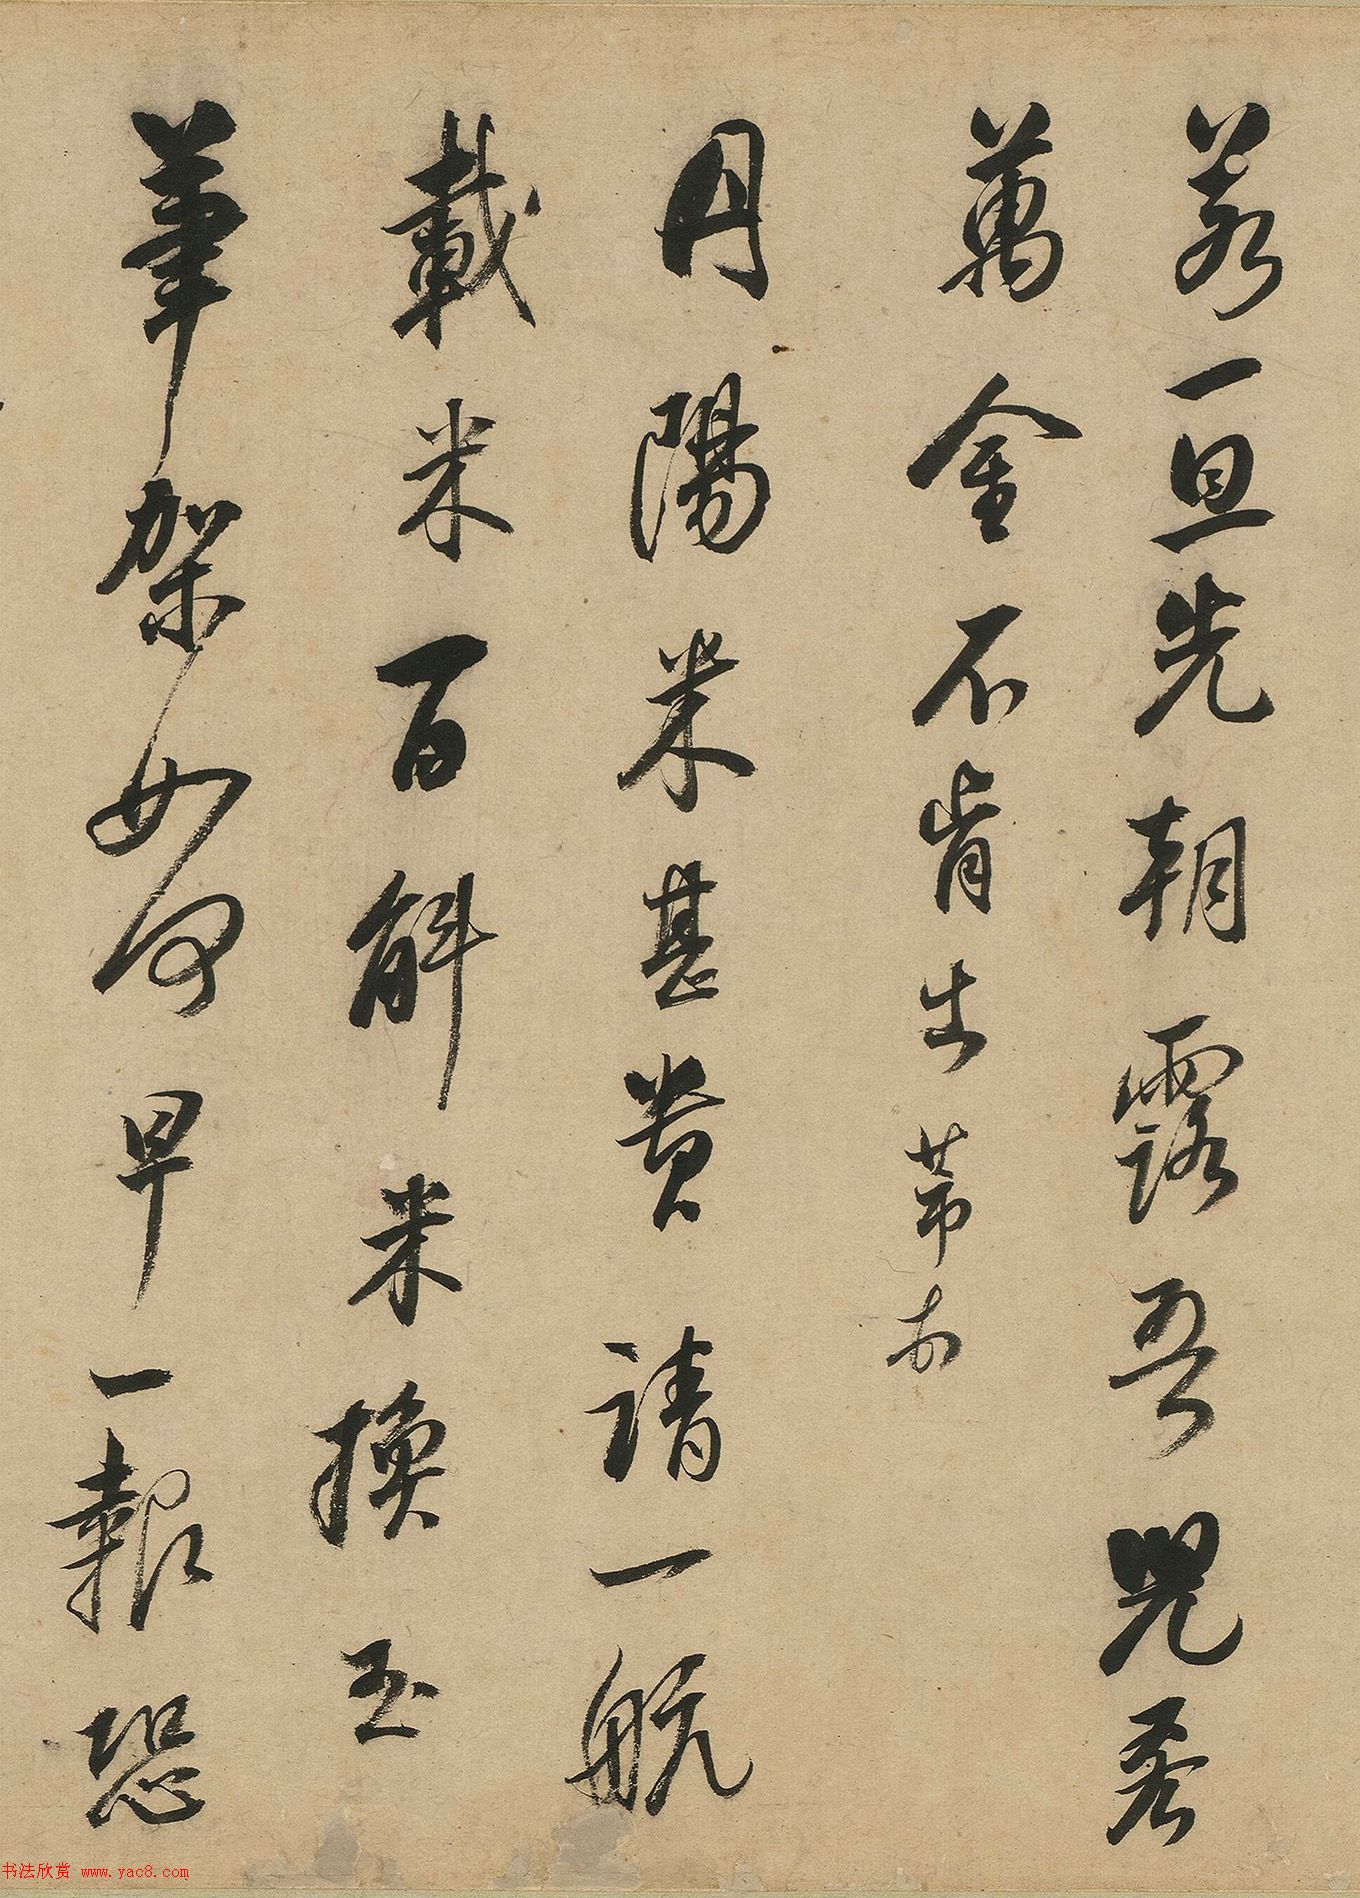 若一旦先朝露吾兒吝
萬金不肯出芾頓
丹陽米甚貴請一航
載米百斛來換玉
筆架如何早一報恐
书法欣赏 www.yac8.com